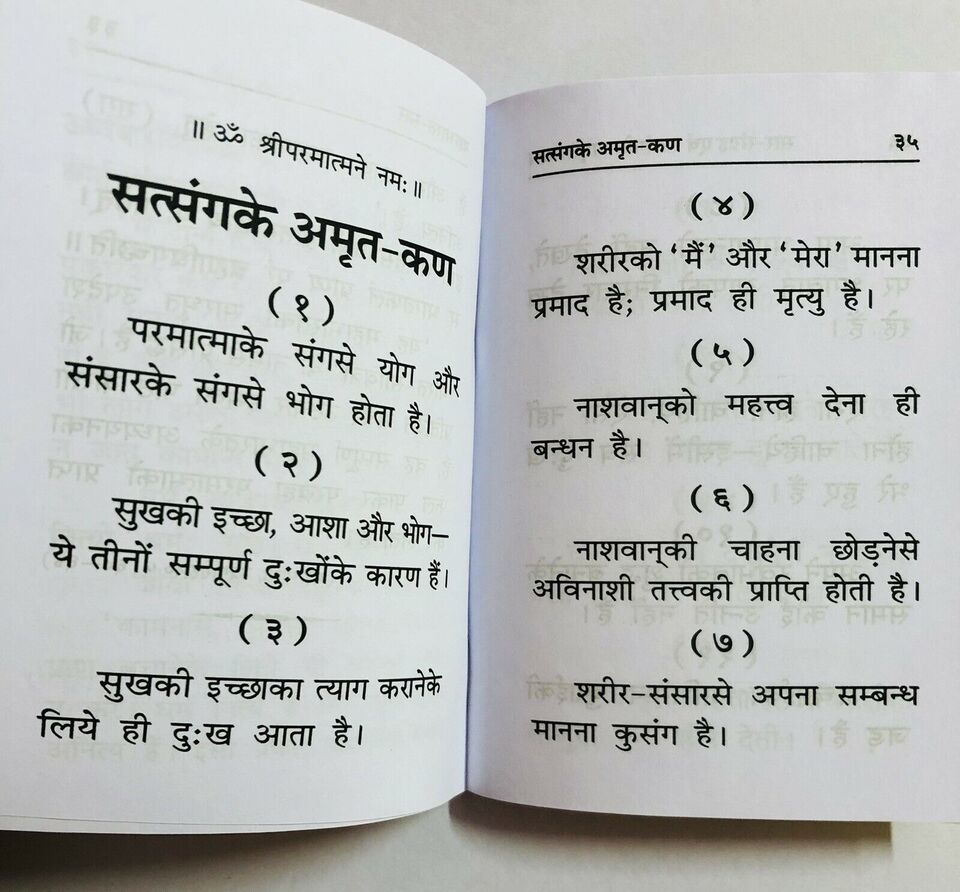 ॥ ॐ श्रीपरमात्मने नमः॥
सत्संगके अमृत-कण
(१)
परमात्माके संगसे योग और
संसारके संगसे भोग होता है।
(२)
सुखकी इच्छा, आशा और भोग—
ये तीनों सम्पूर्ण दु:खोंके कारण हैं।
(३)
सुखकी इच्छाका त्याग करानेके
लिये ही दु:ख आता है।
सत्संगके अमृत-कण ३५
(४)
शरीरको ‘मैं’ और ‘मेरा’ मानना
प्रमाद है; प्रमाद ही मृत्यु है।
(५)
नाशवान्‌को महत्त्व देना ही
बन्धन है।
(६)
नाशवान्‌की चाहना छोड़नेसे
अविनाशी तत्त्वकी प्राप्ति होती है।
(७)
शरीर-संसारसे अपना सम्बन्ध
मानना कुसंग है।